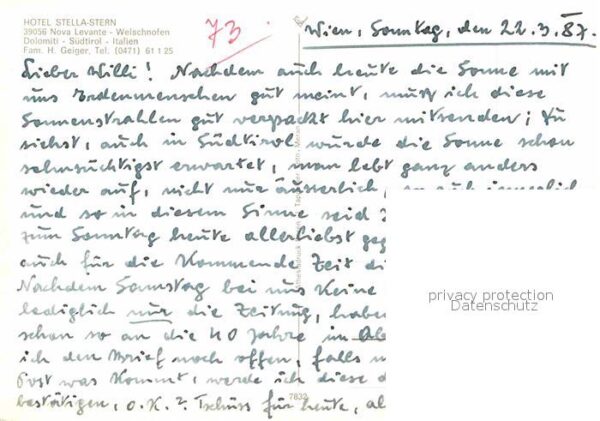 HOTEL STELLA-STERN
39056 Nova Levante - Welschnofen
Dolomiti - Südtirol - Italien
Fam. H. Geiger, Tel. (0471) 61 1 25
73
Wien, Sonntag, den 22.3.87.
Lieber Willi! Nachdem auch heute die Sonne mit
uns Erdenmenschen gut meint, muß ich diese
Sonnenstrahlen gut verpackt hier mitsenden; Du
siehst, auch in Südtirol würde die Sonne schon
sehnsüchtigst erwartet, man lebt ganz anders
wieder auf, nicht nur äusserlich,
und so in diesem Sinne seid
zum Sonntag heute allerliebst geg
auch für die kommende Zeit di
Nachdem Samstag bei uns keine
lediglich nur die Zeitung, habe
schon so an die 40 Jahre im Ab
ich den Brief noch offen, falls
Post was kommt, werde ich diese
bestätigen, o.k.? Tschüss für heute, al
7832
privacy protection
Datenschutz